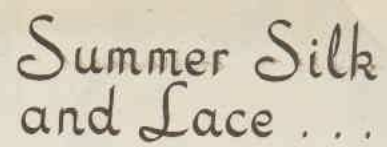 Summer Silk
and Lace . . .